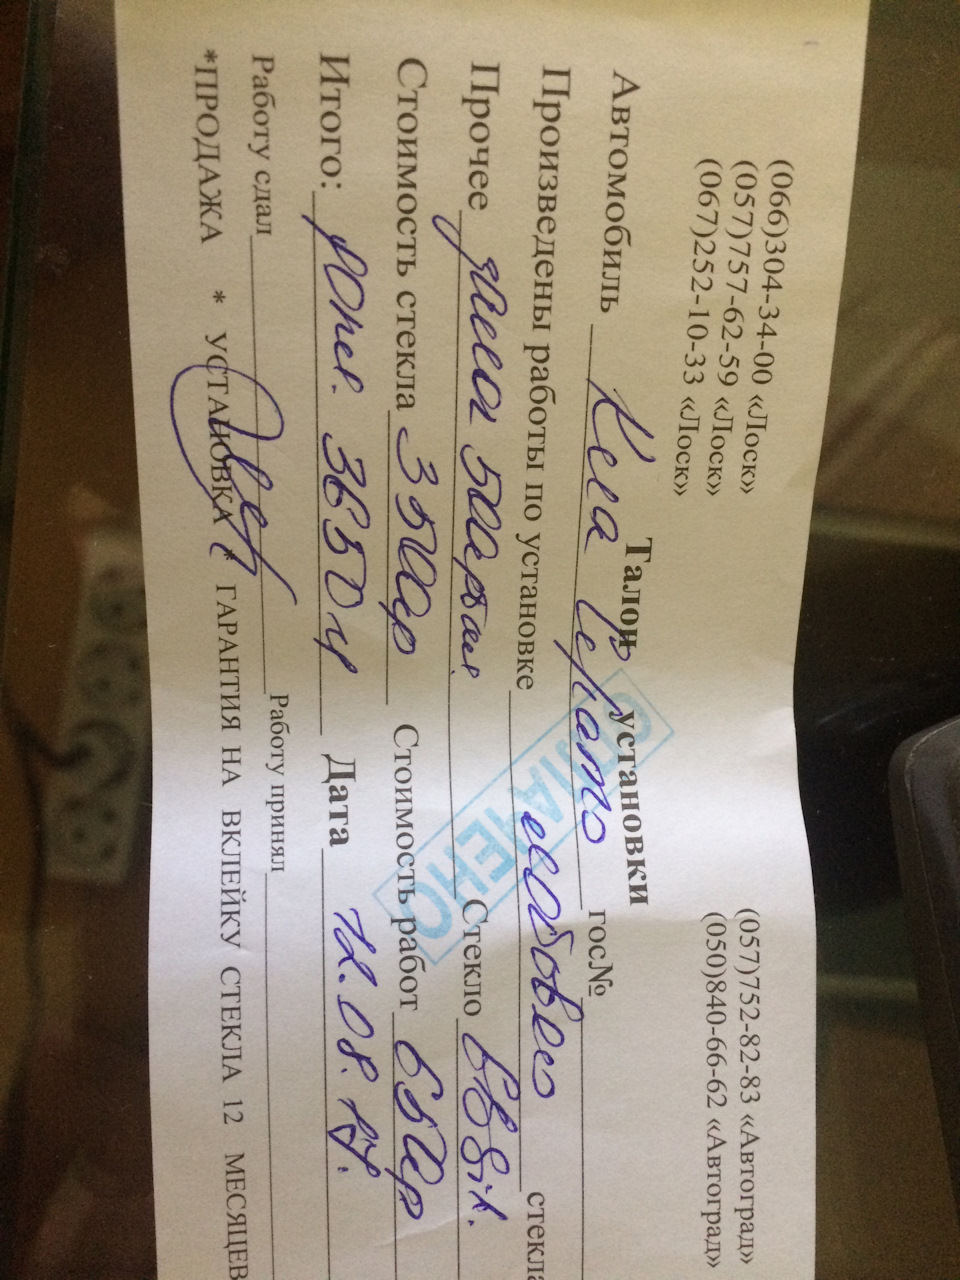 (066)304-34-00 «Лоск»
(057)757-62-59 «Лоск»
(067)252-10-33 «Лоск»
(057)752-82-83 «Автоград»
(050)840-66-62 «Автоград»
Талон установки
Автомобиль Киа Черато гос№
Произведены работы по установке лобового стекла
Прочее Стекло
ОПЛАЧЕНО
Стоимость стекла 3500гр Стоимость работ 650гр
Итого: 3650 гр Дата 12.08.17.
Работу сдал Работу принял
*ПРОДАЖА * УСТАНОВКА * ГАРАНТИЯ НА ВКЛЕЙКУ СТЕКЛА 12 МЕСЯЦЕВ